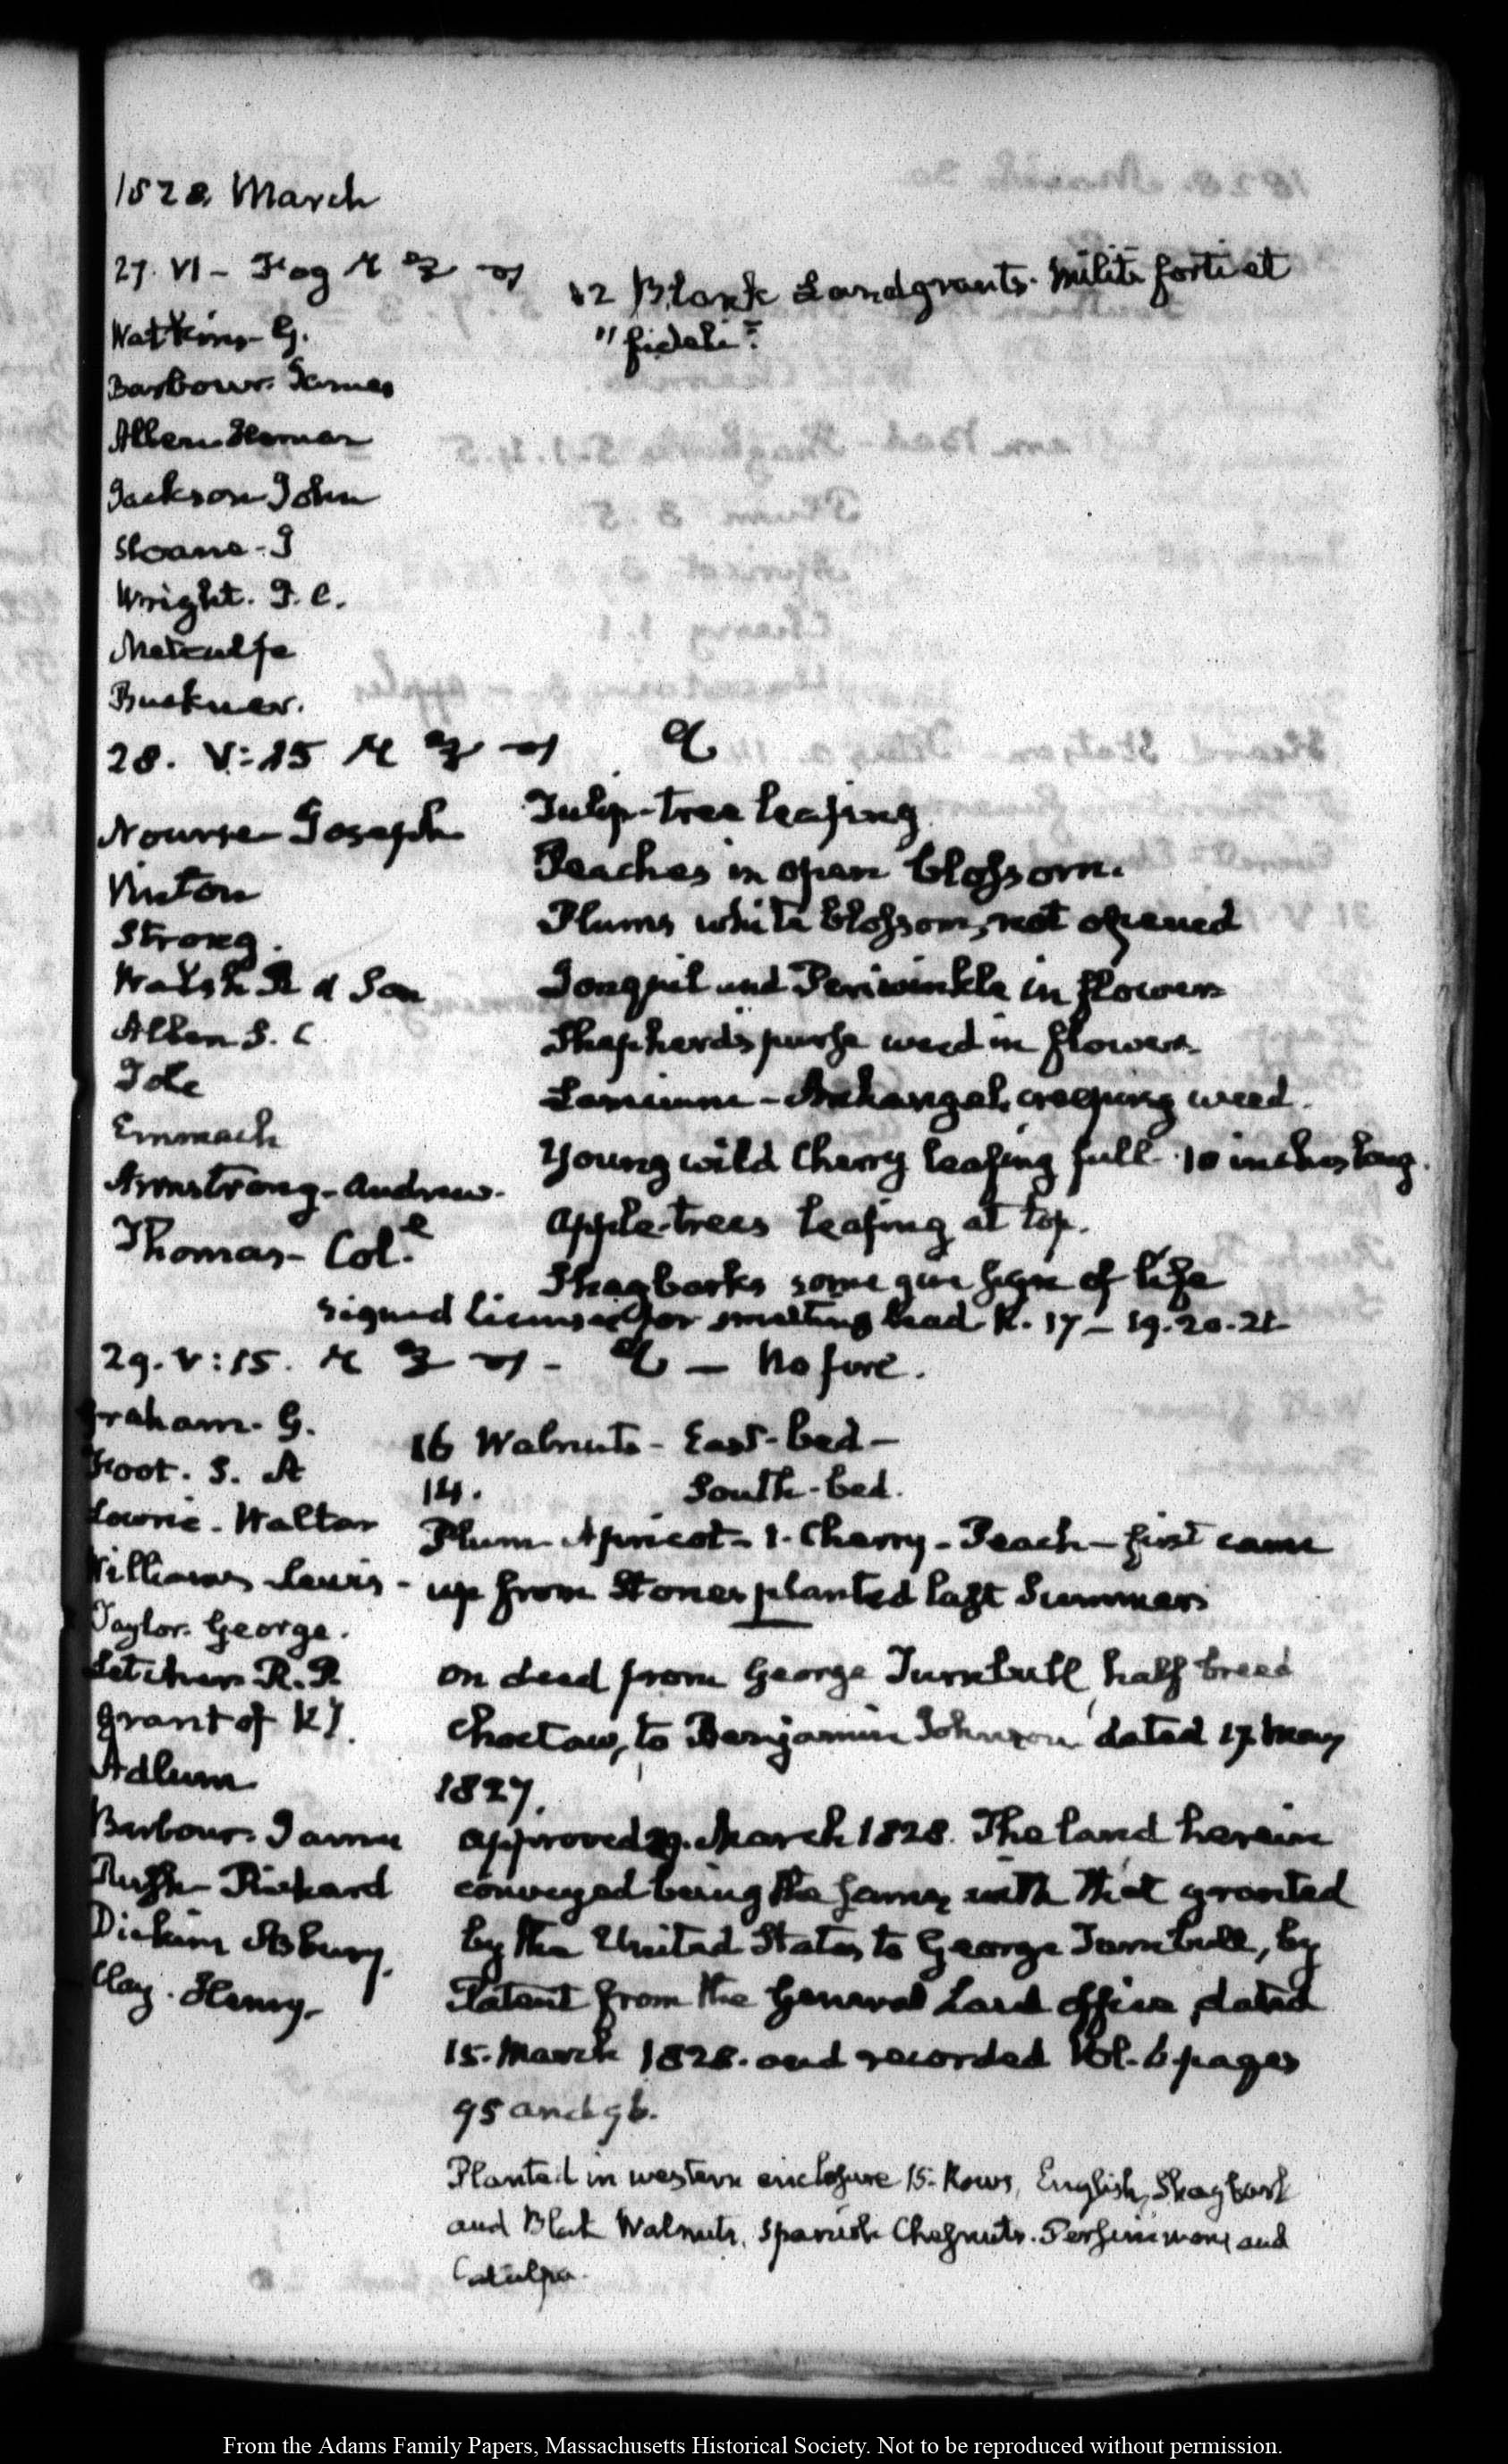 1828, March
27. VI - Fog
12 Blank Landgrants. Militi forti et
"fideli"
Watkins - G.
Barbour. James
Allen Heman
Jackson John
Sloane - J
Wright. J. C.
Metcalfe
Buckner.
28. V:15
Nourse - Joseph
Vinton
Strong.
Walsh R & Son
Allen S. C.
Tole
Emmach
Armstrong - Andrew.
Thomas - Col.
Tulip-tree leafing
Peaches in open blossom.
Plums white blossom, not opened
Jonquil and Periwinkle in flower
Shepherd's purse weed in flower.
Lamium - Archangel, creeping weed.
Young wild Cherry leafing full. 10 inches long.
Apple-trees leafing at top.
Shagbarks some give sign of life
signed licenses for smelting lead R. 17 - 19. 20. 21
29. V:15. - No fire.
Graham. G.
Foot. S. A
Lowrie. Walter
Williams Lewis -
Taylor. George.
Letcher R. P.
Grant of Ky.
Adlum
Barbour. James
Rush - Richard
Dickins Asbury.
Clay. Henry.
16 Walnuts - East-bed -
14. South-bed.
Plum - Apricot - 1. Cherry - Peach - first came
up from Stones planted last Summer
on deed from George Turnbull, half breed
Choctaw, to Benjamin Johnson dated 17. May
1827.
approved 29. March 1828. The land herein
conveyed being the same, with that granted
by the United States to George Turnbull, by
Patent from the General Land Office, dated
15. March 1828. and recorded Vol. 6 pages
95 and 96.
Planted in western enclosure 15. Rows, English, Shagbark
and Black Walnuts, Spanish Chesnuts. Persimmons and
Catalpa.
From the Adams Family Papers, Massachusetts Historical Society. Not to be reproduced without permission.